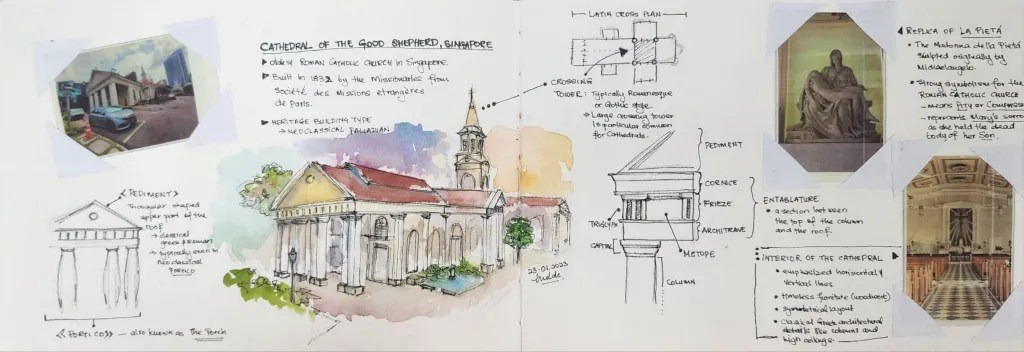 CATHEDRAL OF THE GOOD SHEPHERD, SINGAPORE
oldest ROMAN CATHOLIC CHURCH in Singapore
Built in 1832 by the Missionaries from
Société des Missions étrangères
de Paris.
HERITAGE BUILDING TYPE
→ NEOCLASSICAL PALLADIAN
<PEDIMENT>
Triangular shaped
upper part of the
roof.
→ classical
greek & Roman
→ typically seen in
Neoclassical
PORTICO
<PORTICO> — also known as the Porch
23.01.2023
LATIN CROSS PLAN
CROSSING
TOWER: Typically Romanesque
or Gothic style
→ Large crossing tower
is particular common
for Cathedrals.
PEDIMENT
CORNICE
FRIEZE
ARCHITRAVE
TRIGLYPH
CAPITAL
METOPE
COLUMN
ENTABLATURE
• a section between
the top of the column
and the roof.
REPLICA OF LA PIETÁ
• The Madonna della Pietá
sculpted originally by
Michaelangelo.
• Strong symbolism for the
ROMAN CATHOLIC CHURCH
– means PITY or
– represents Mary's
as she held the dead
body of her Son.
INTERIOR OF THE CATHEDRAL
• emphasized horizontal &
vertical lines
• timeless furniture (woodwork)
• symmetrical layout
• Classical Greek architectural
details like columns and
high ceilings.